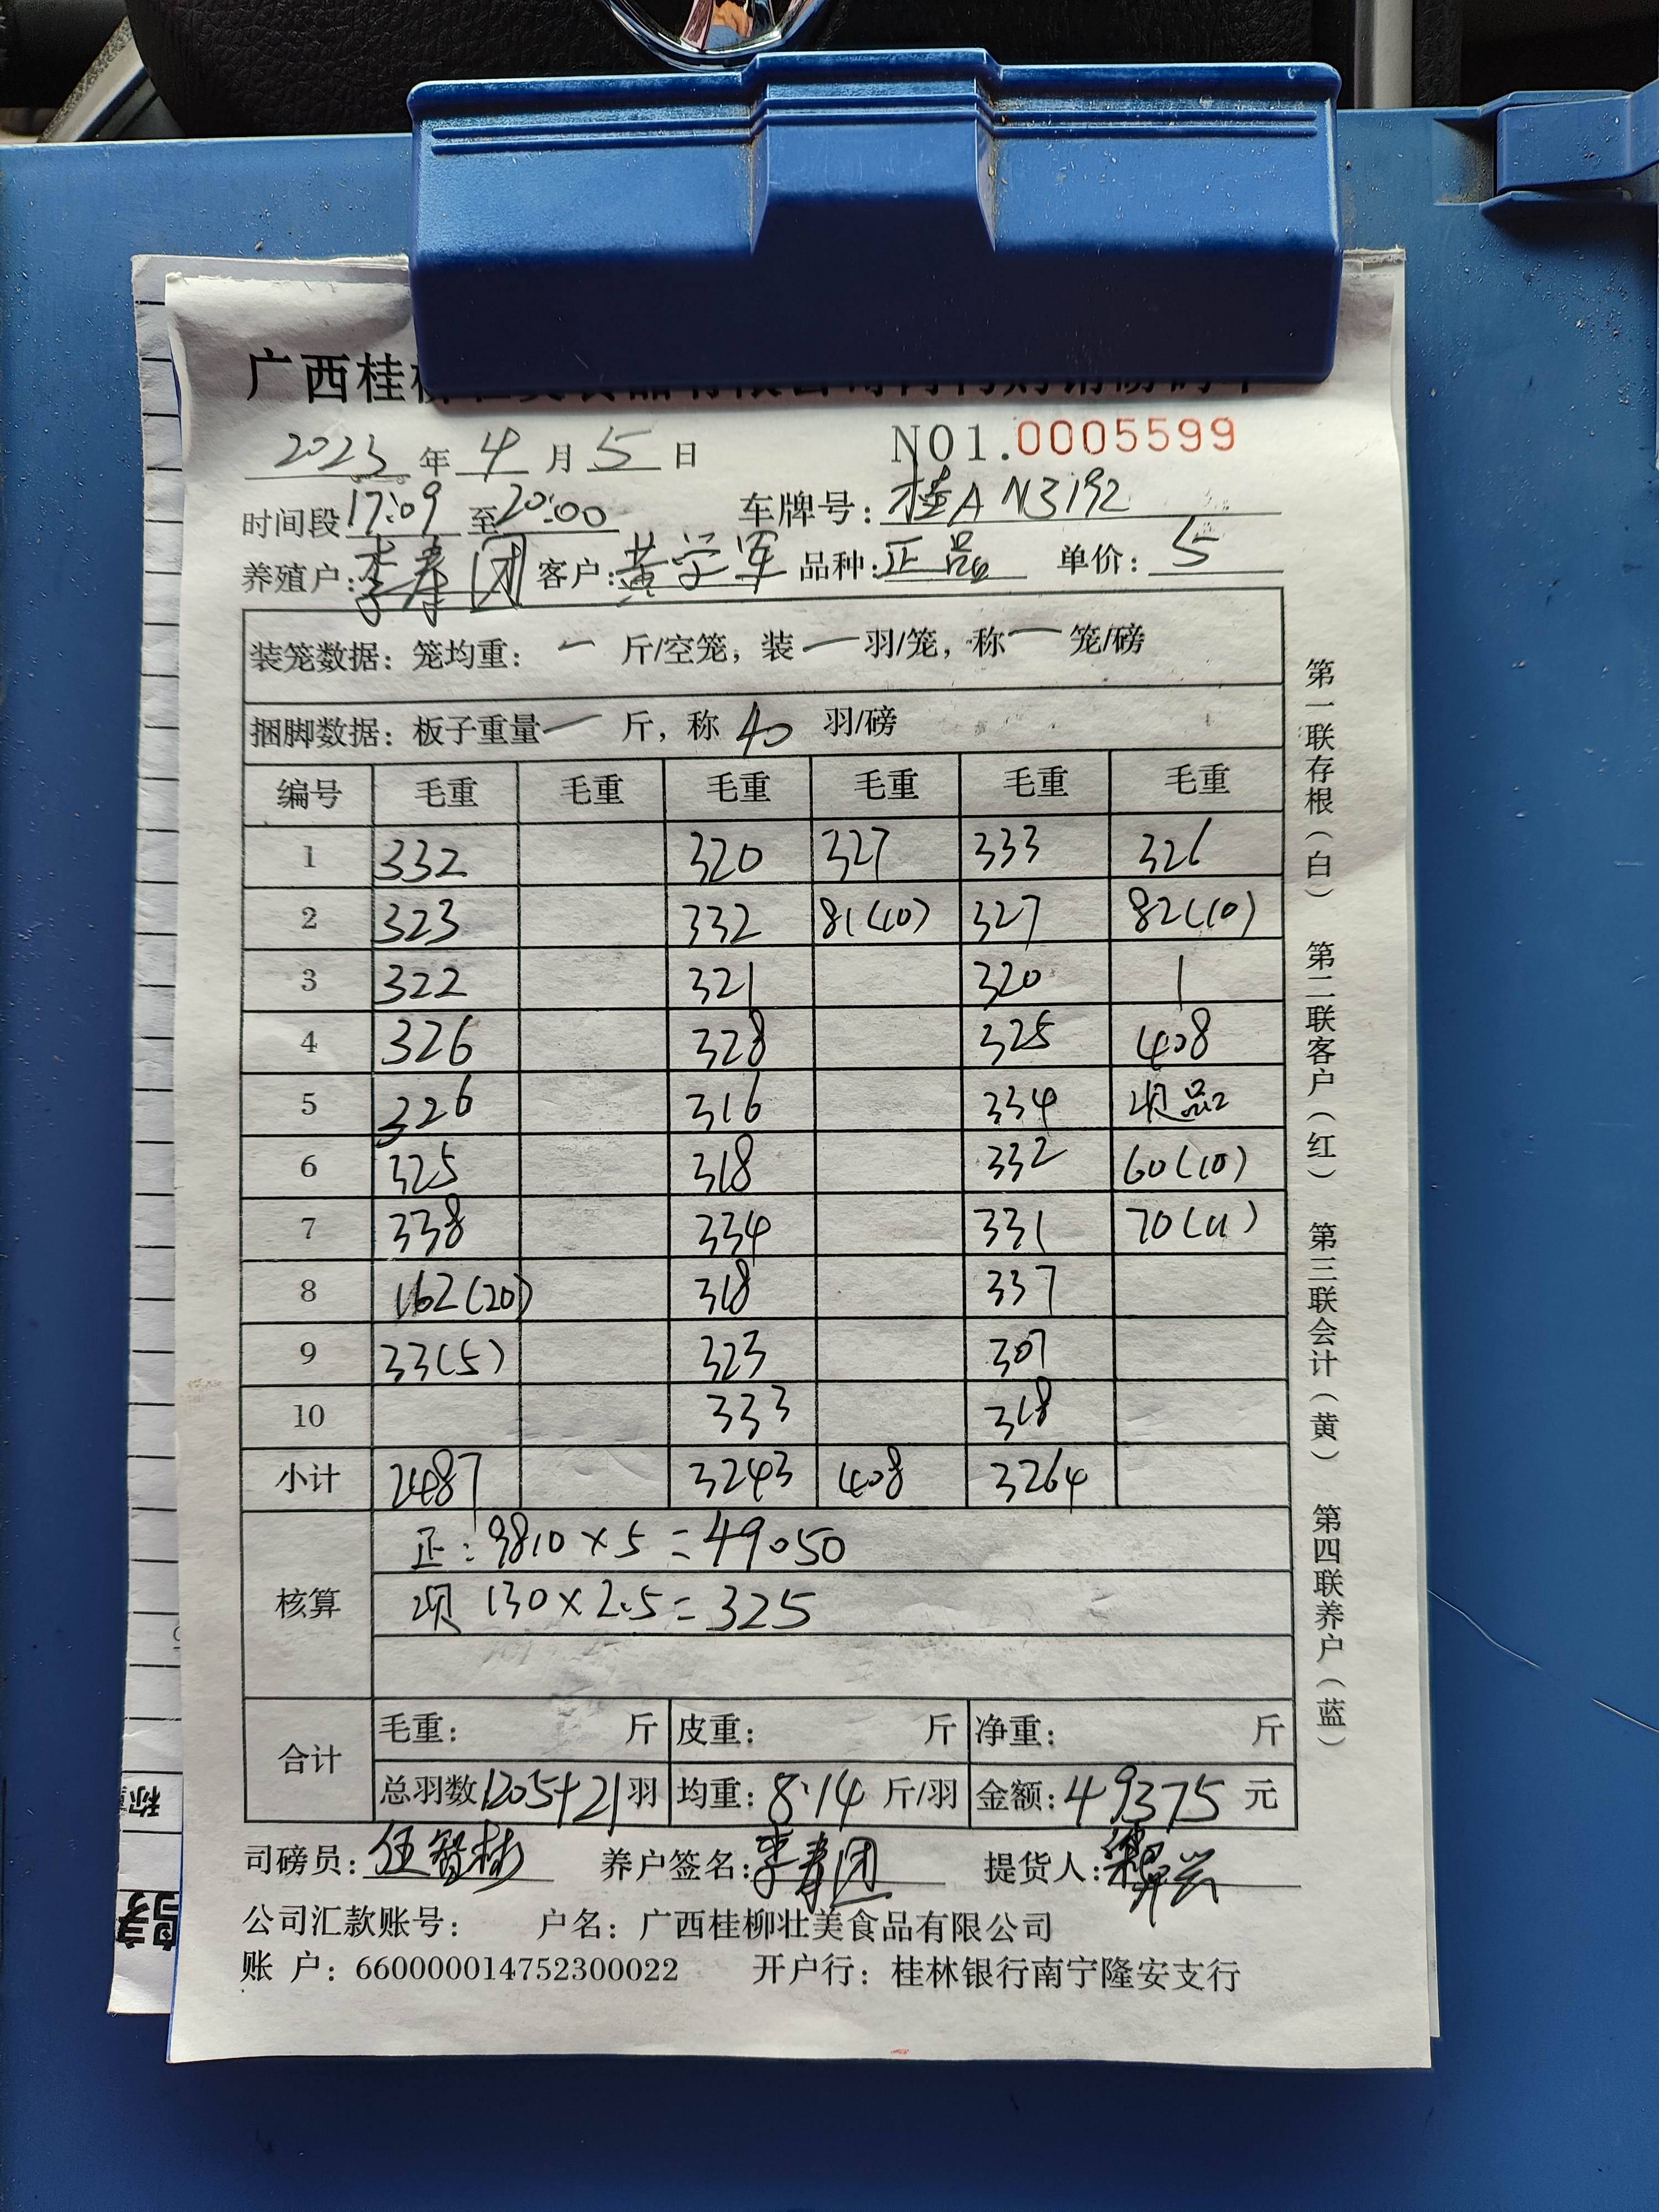 广西桂
2023 年 4 月 5 日 NO1.0005599
时间段 17:09 至 20:00 车牌号: 桂A N3192
养殖户: 李寿团 客户: 黄学军 品种: 正品 单价: 5
装笼数据: 笼均重: 一 斤/空笼, 装 一 羽/笼, 称 一 笼/磅
捆脚数据: 板子重量 一 斤, 称 40 羽/磅
编号 毛重 毛重 毛重 毛重 毛重 毛重
1 332 320 327 333 326
2 323 332 81(10) 327 82(10)
3 322 321 320 1
4 326 328 325 408
5 326 316 334 坝品
6 325 318 332 60(10)
7 338 334 331 70(11)
8 162(20) 318 337
9 33(5) 323 307
10 333 318
小计 2487 3243 408 3264
核算 正: 9810×5=49050
坝 130×2.5=325
合计 毛重: 斤 皮重: 斤 净重: 斤
总羽数 1205+21 羽 均重: 8.14 斤/羽 金额: 49375 元
司磅员: 伍智彬 养户签名: 李寿团 提货人:
公司汇款账号: 户名: 广西桂柳壮美食品有限公司
账 户: 660000014752300022 开户行: 桂林银行南宁隆安支行
第一联存根(白) 第二联客户(红) 第三联会计(黄) 第四联养户(蓝)